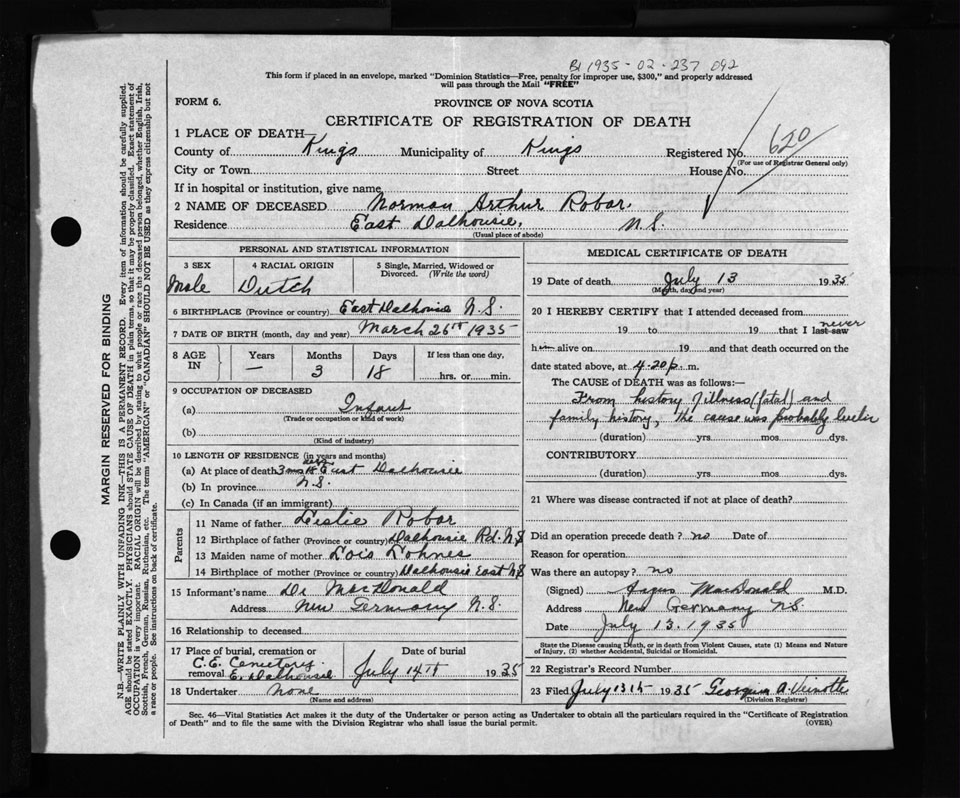 1935-02-237 092
This form if placed in an envelope, marked "Dominion Statistics—Free, penalty for improper use, $300," and properly addressed
will pass through the Mail "FREE"
FORM 6.
PROVINCE OF NOVA SCOTIA
CERTIFICATE OF REGISTRATION OF DEATH
1 PLACE OF DEATH—
County of Kings Municipality of Kings Registered No. 620
(For use of Registrar General only)
City or Town Street House No.
If in hospital or institution, give name
2 NAME OF DECEASED Norman Arthur Robar.
Residence East Dalhousie, N.S.
(Usual place of abode)
PERSONAL AND STATISTICAL INFORMATION
3 SEX 4 RACIAL ORIGIN 5 Single, Married, Widowed or
Divorced. (Write the word)
Male Dutch
6 BIRTHPLACE (Province or country) East Dalhousie N.S.
7 DATE OF BIRTH (month, day and year) March 26th 1935
8 AGE IN Years Months Days If less than one day,
— 3 18 hrs. or min.
9 OCCUPATION OF DECEASED
(a) Infant
(Trade or occupation or kind of work)
(b)
(Kind of industry)
10 LENGTH OF RESIDENCE (in years and months)
(a) At place of death 3 mos 18 days East Dalhousie
(b) In province N.S.
(c) In Canada (if an immigrant)
Parents
11 Name of father Leslie Robar
12 Birthplace of father (Province or country) Dalhousie Rd. N.S
13 Maiden name of mother Lois Lohnes
14 Birthplace of mother (Province or country) Dalhousie East N.S
15 Informant's name Dr MacDonald
Address New Germany N.S.
16 Relationship to deceased
17 Place of burial, cremation or removal Date of burial
C.E. Cemetery
E. Dalhousie July 14th 1935
18 Undertaker None
(Name and address)
MEDICAL CERTIFICATE OF DEATH
19 Date of death July 13 1935
(Month, day and year)
20 I HEREBY CERTIFY that I attended deceased from
19 to 19 that I last saw never
him alive on 19 and that death occurred on the
date stated above, at 4.20 p. m.
The CAUSE of DEATH was as follows:—
From history of illness (fatal) and
family history, the cause was probably
(duration) yrs. mos. dys.
CONTRIBUTORY
(duration) yrs. mos. dys.
21 Where was disease contracted if not at place of death?
Did an operation precede death? no Date of
Reason for operation
Was there an autopsy? no
(Signed) Angus MacDonald M.D.
Address New Germany NS.
Date July 13. 1935
State the Disease causing Death, or in death from Violent Causes, state (1) Means and Nature
of Injury, (2) whether Accidental, Suicidal or Homicidal.
22 Registrar's Record Number
23 Filed July 1935 Georgina A. Veinotte
(Division Registrar)
Sec. 46—Vital Statistics Act makes it the duty of the Undertaker or person acting as Undertaker to obtain all the particulars required in the "Certificate of Registration
of Death" and to file the same with the Division Registrar who shall issue the burial permit. (OVER)
MARGIN RESERVED FOR BINDING
N.B.—WRITE PLAINLY WITH UNFADING INK—THIS IS A PERMANENT RECORD. Every item of information should be carefully supplied.
AGE should be stated EXACTLY. PHYSICIANS should STATE CAUSE OF DEATH in plain terms, so that it may be properly classified. Exact statement of
OCCUPATION is very important. RACIAL ORIGIN will be described by stating to what people or race the deceased person belonged, whether English, Irish,
Scottish, French, German, Russian, Ruthenian, etc. The terms "AMERICAN" or "CANADIAN" SHOULD NOT BE USED as they express citizenship but not
a race or people. See instructions on back of certificate.